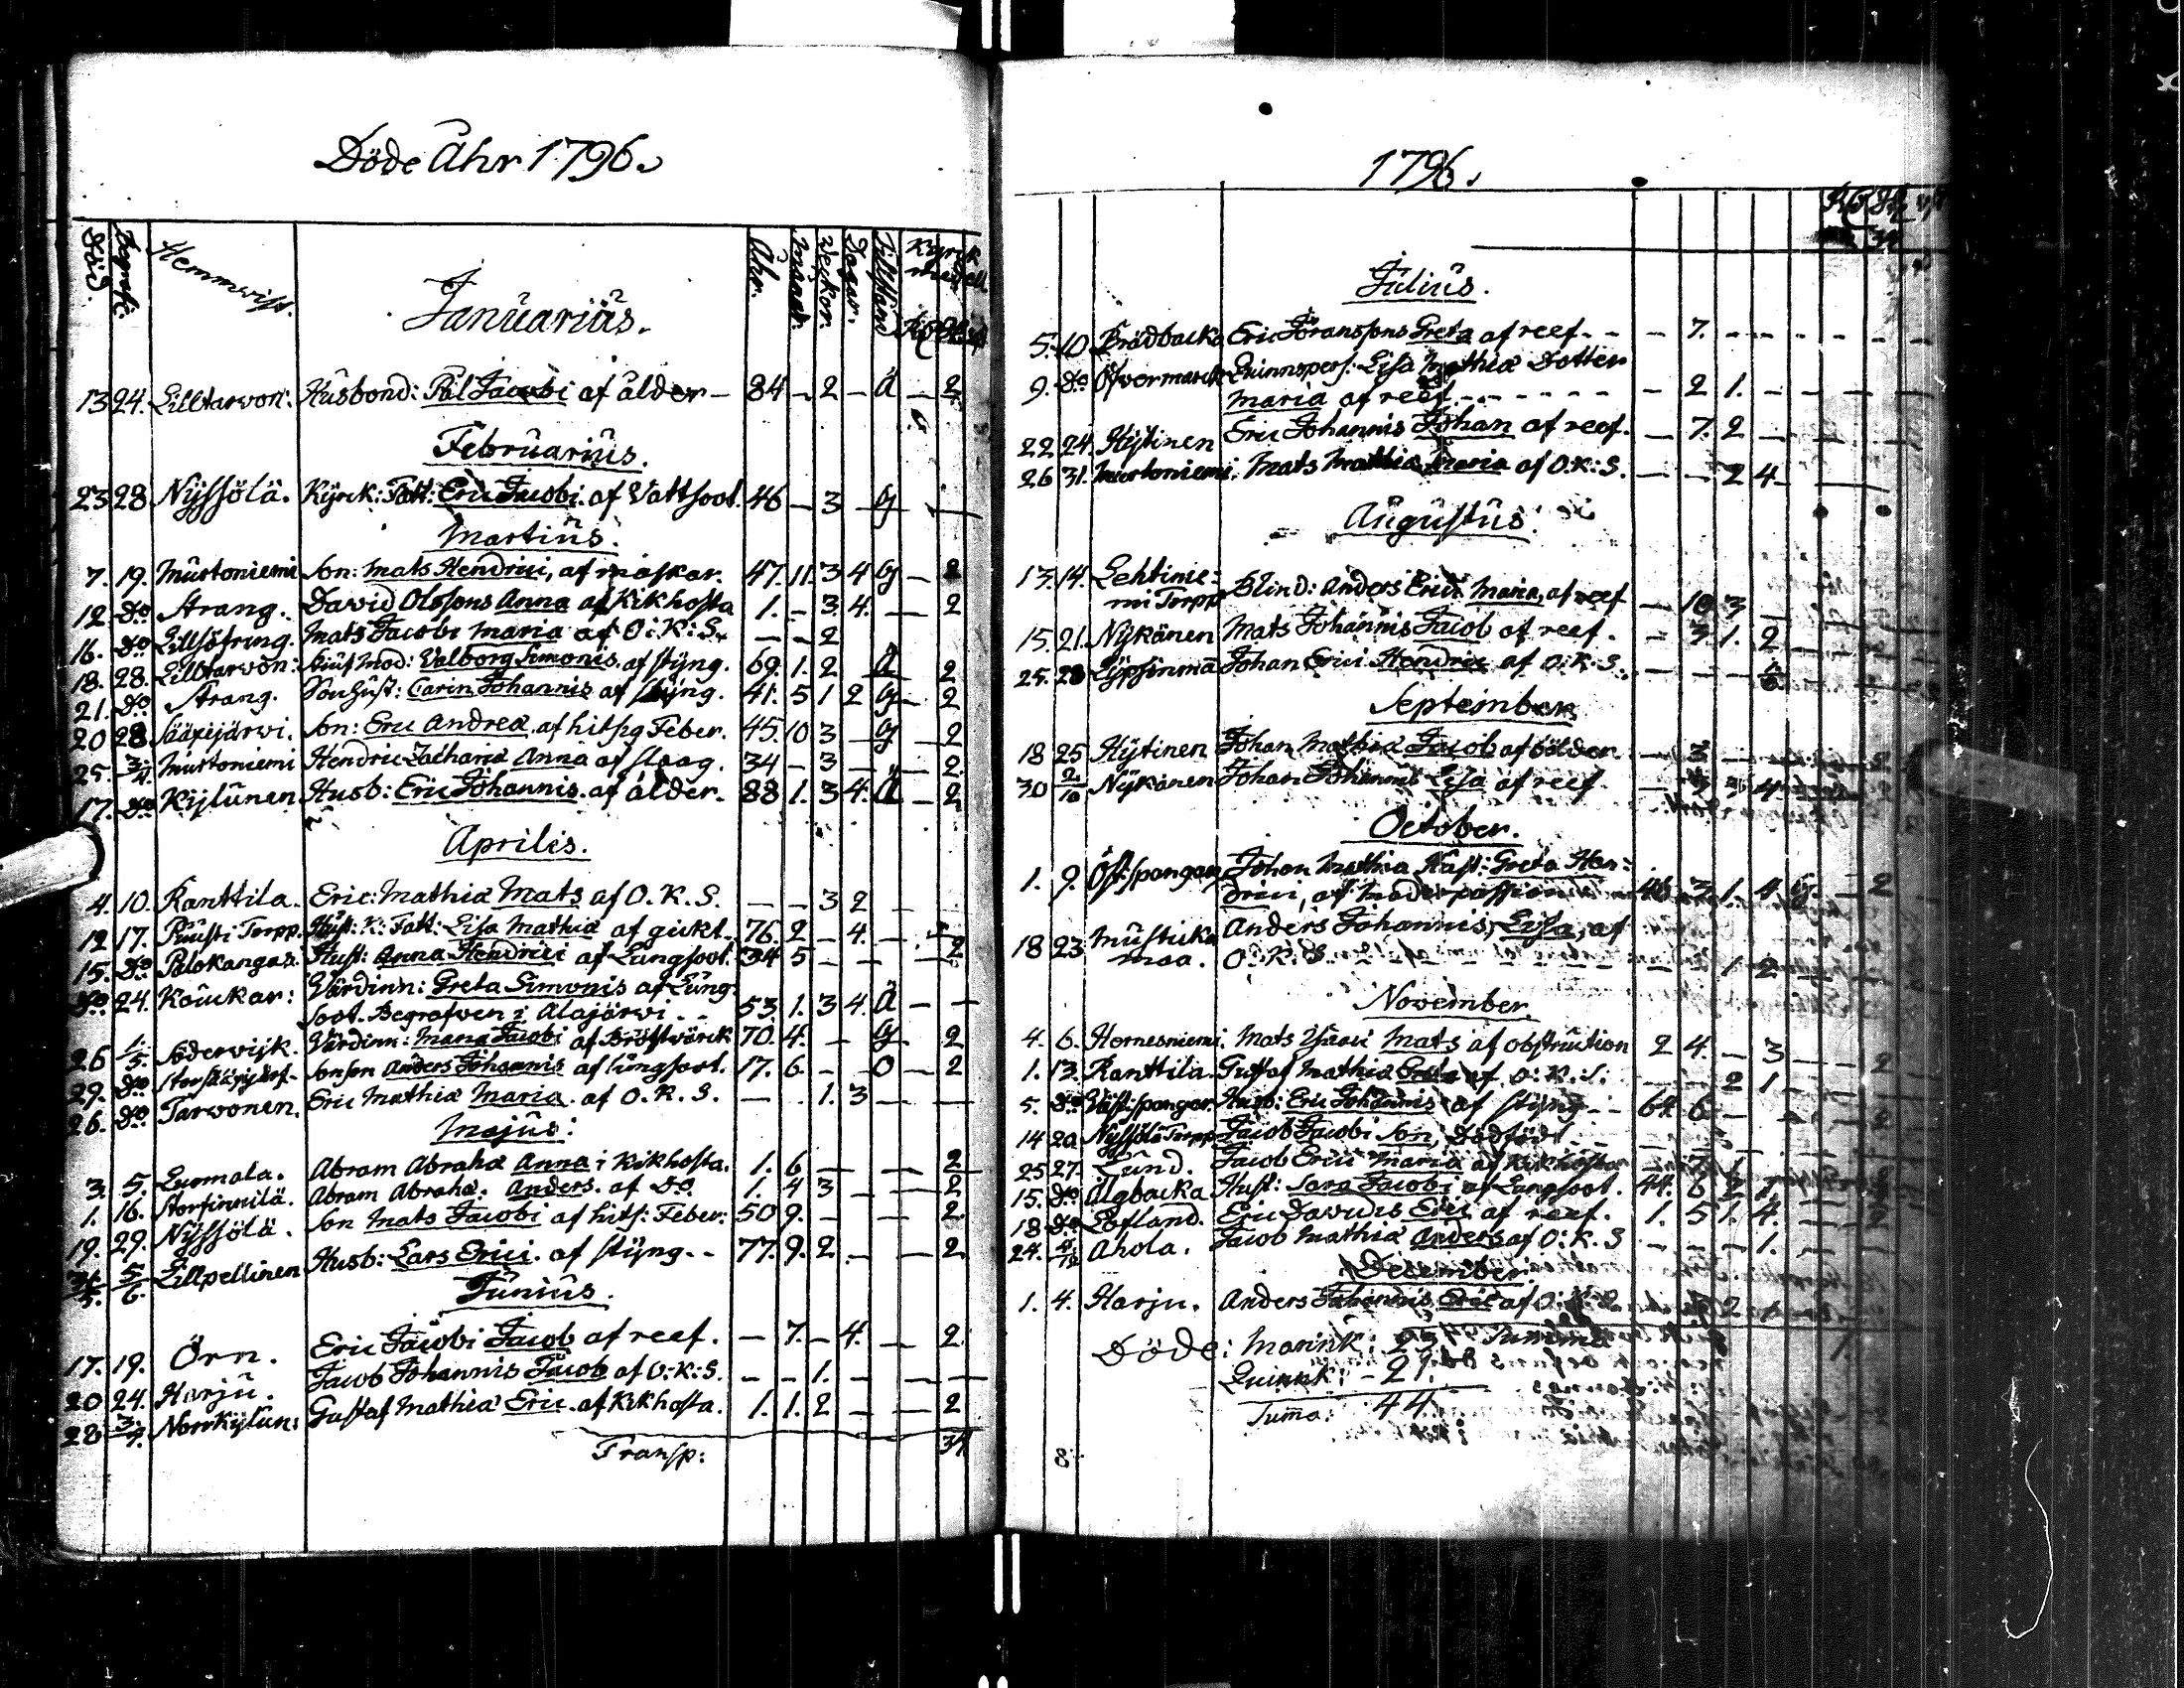 Döde Åhr 1796.
Död. Begrafv. Hemmwist. Åhr. Månad. Weckor. Dagar. Tillstånd
Januarius.
13 24. Lilltarvon: Husbond: Pål Jacobi af ålder – 84 – 2 – Ä – 2
Februarius.
23 28 Nyssölä. Kyrck: Fatt: Eric Jacobi af Vattsoot. 46 – 3 – G – –
Martius.
7. 19. Murtoniemi Son: Mats Hendrici, af måskar. 47. 11. 3 4 G – 2
12 do Strang. David Olofsons Anna af Kikhosta 1. – 3. 4. – 2
16. do Lillsöfring. Mats Jacobi Maria af O: K: S. – – 2
18. 28. Lilltarvon: Mod: Valborg Simonis af styng. 69. 1. 2 Ä 2
21. do Strang. Sonhust: Carin Johannis af styng. 41. 5 1 2 G – 2
20 28 Sääxijärwi. Son: Eric Andreæ af hitsig Feber. 45. 10 3 – G – 2
25. 3/4. Murtoniemi Hendric Zachariæ Anna af slaag. 34 – 3 – – 2.
17. do Kylunen Husb: Eric Johannis af ålder. 88 1. 3 4. Ä – 2
Aprilis.
4. 10. Kanttila. Eric Mathiæ Mats af O. K. S. – – 3 2 –
12 17. Puusti Torpp. Hust: K: Fatt: Lisa Mathiæ af gickt. 76. 2 – 4. –
15. do Palokangas. Hust: Anna Hendrici af Lungsoot. 34 5 – – – 2
do 24. Koukkar: Värdinn: Greta Simonis af Lung:
soot. Begrafven i Alajärwi – – 53. 1. 3 4. Ä – –
26 1/5. Söderwijk. Värdinn: Maria Jacobi af Bröstwärck 70. 4. – G 2
29. do Sonson Anders Johannis af lungsoot. 17. 6 – – O – 2
26. do Tarvonen. Eric Mathiæ Maria af O. K. S. – 1. 3 – –
Majus:
3. 5. Luomala. Abram Abrahæ Anna i Kikhosta. 1. 6 – – 2
1. 16. Storfinnilä. Abram Abrahæ: Anders. af do. 1. 4 3 – – 2
19. 29. Nyssölä. Son Mats Jacobi af hits: Feber. 50 9. – – 2.
31/5. 5/6. Lillpellinen Husb: Lars Erici af styng – – 77. 9. 2 – – 2.
Junius.
17. 19. Örn. Eric Jacobi Jacob af reef. – 7. – 4. – 2
20 24. Harju. Jacob Johannis Jacob af O: K: S. – – 1. – – –
28 3/7. Norrkylun: Gustaf Mathiæ Eric af Kikhosta. 1. 1. 2 – – 2
Transp: 34
1796.
34
Julius.
5. 10 Brädbacka Eric Göransons Greta af reef – – – 7. – – – –
9. do Öfvermarck Quinnspers: Lisa Mathiæ Dotter
Maria af reef. – – – – – – 2 1. – – –
22 24. Hytinen Eric Johannis Johan af reef. – 7. 2
26 31. Murtoniemi. Mats Mathiæ Maria af O. K: S. – – 2 4 –
Augustus.
13. 14. Lehtinie:
mi Torpp Blind: Anders Erici Maria, af reef – 10. 3
15. 21. Nykänen Mats Johannis Jacob af reef. – 3. 1. 2
25. 28 Johan Erici Hendric af O. K. S.
September
18 25 Hytinen Johan Mathiæ Jacob af bölder – 3
30 2/10 Nykänen Johan Johannis Lisa af reef.
October.
1. 9. Öst: spangar Johan Mathiæ Hust: Greta Hen:
drici, af moderpassion 46 3 1. 4 G. – 2
18 23 Mustikka
maa. Anders Johannis Lisa, af
O. K: S. 1 2
November
4. 6. Hernesniemi. Mats Mats af obstruction 2 4. – 3
1. 13. Kanttila. Gustaf Mathiæ Greta af O: K: S. 2 1
5. do Väst: spangar. Husb: Eric Johannis af styng – – 64 6
14 20 Nyssölä Torpp Jacob Jacobi Son, Dödfödt
25 27. Lund. Jacob Erici Maria af Kikhosta
15. do Älgbacka Hust: Sara Jacobi af Lungsoot. 44. 6
18 do Löfland. Eric Davidis Eric af reef. 1. 5 1. 4.
24. Ahola. Jacob Mathiæ Anders af O: K. S – – – 1.
December.
1. 4. Harju. Anders Johannis Eric af O: K: S. 2
Döde: Mannk:
Quinnk: – 21.
Summa: 44
8